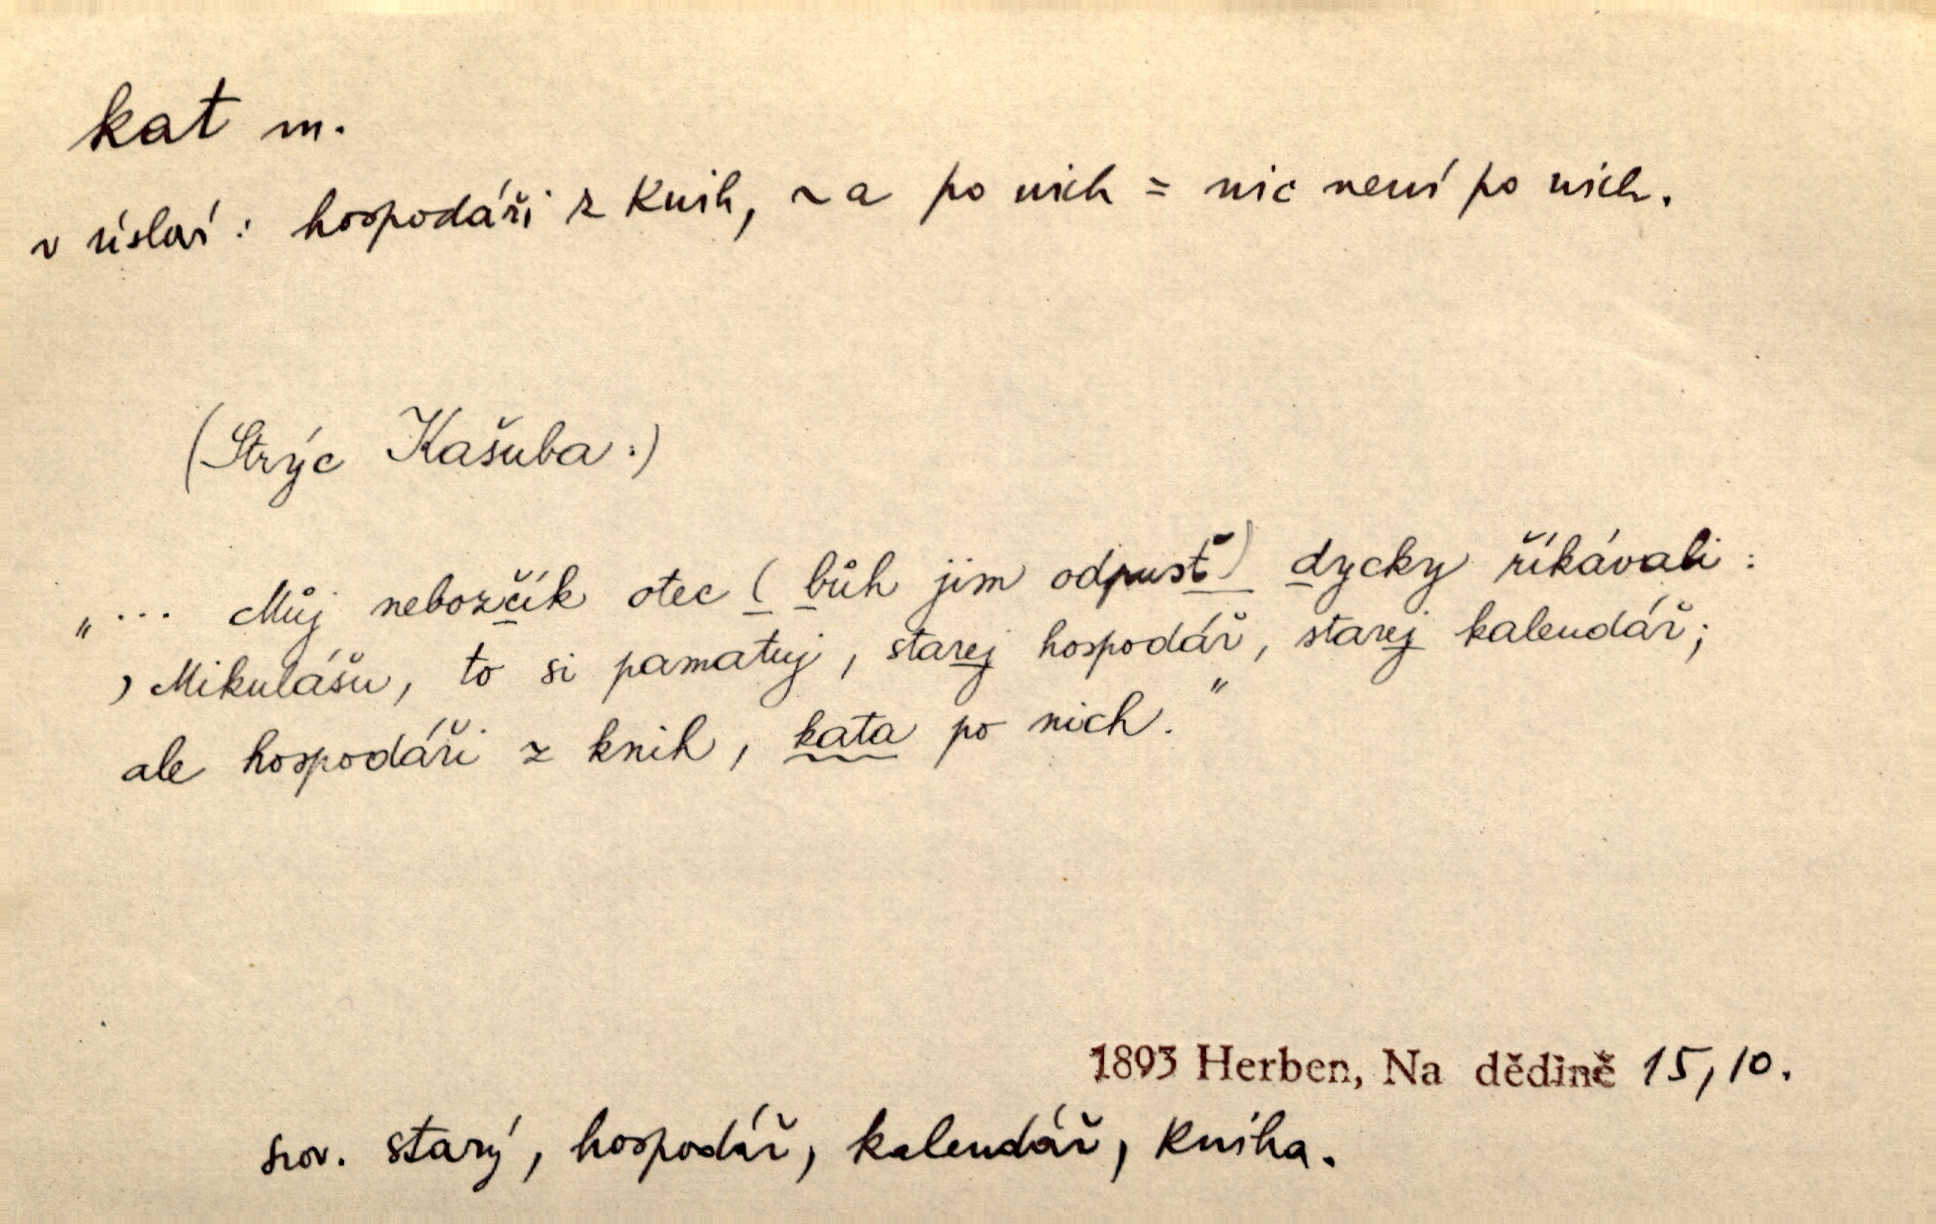 kat m.
v úsloví: hospodáři z knih, ~a po nich = nic není po nich.
(Strýc Kašuba:)
„... Můj nebozčík otec (bůh jim odpusť) dycky říkávali:
‚Mikulášu, to si pamatuj, starej hospodář, starej kalendář;
ale hospodáři z knih, kata po nich.“
1893 Herben, Na dědině 15,10.
srov. starý, hospodář, kalendář, kniha.